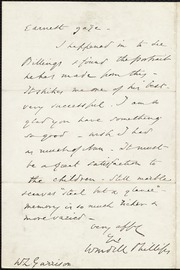 earnest gaze.
I happened in to see
Billings & found the portrait
he has made from this -
It strikes me one of his best -
very successful. I am
glad you have something
so good - wish I had
as much of Ann - It must
be a great satisfaction to
the children - Still marble
deserves "steal but a glance"
memory is so much richer &
more sacred -
very affly
Wendell Phillips
WL Garrison